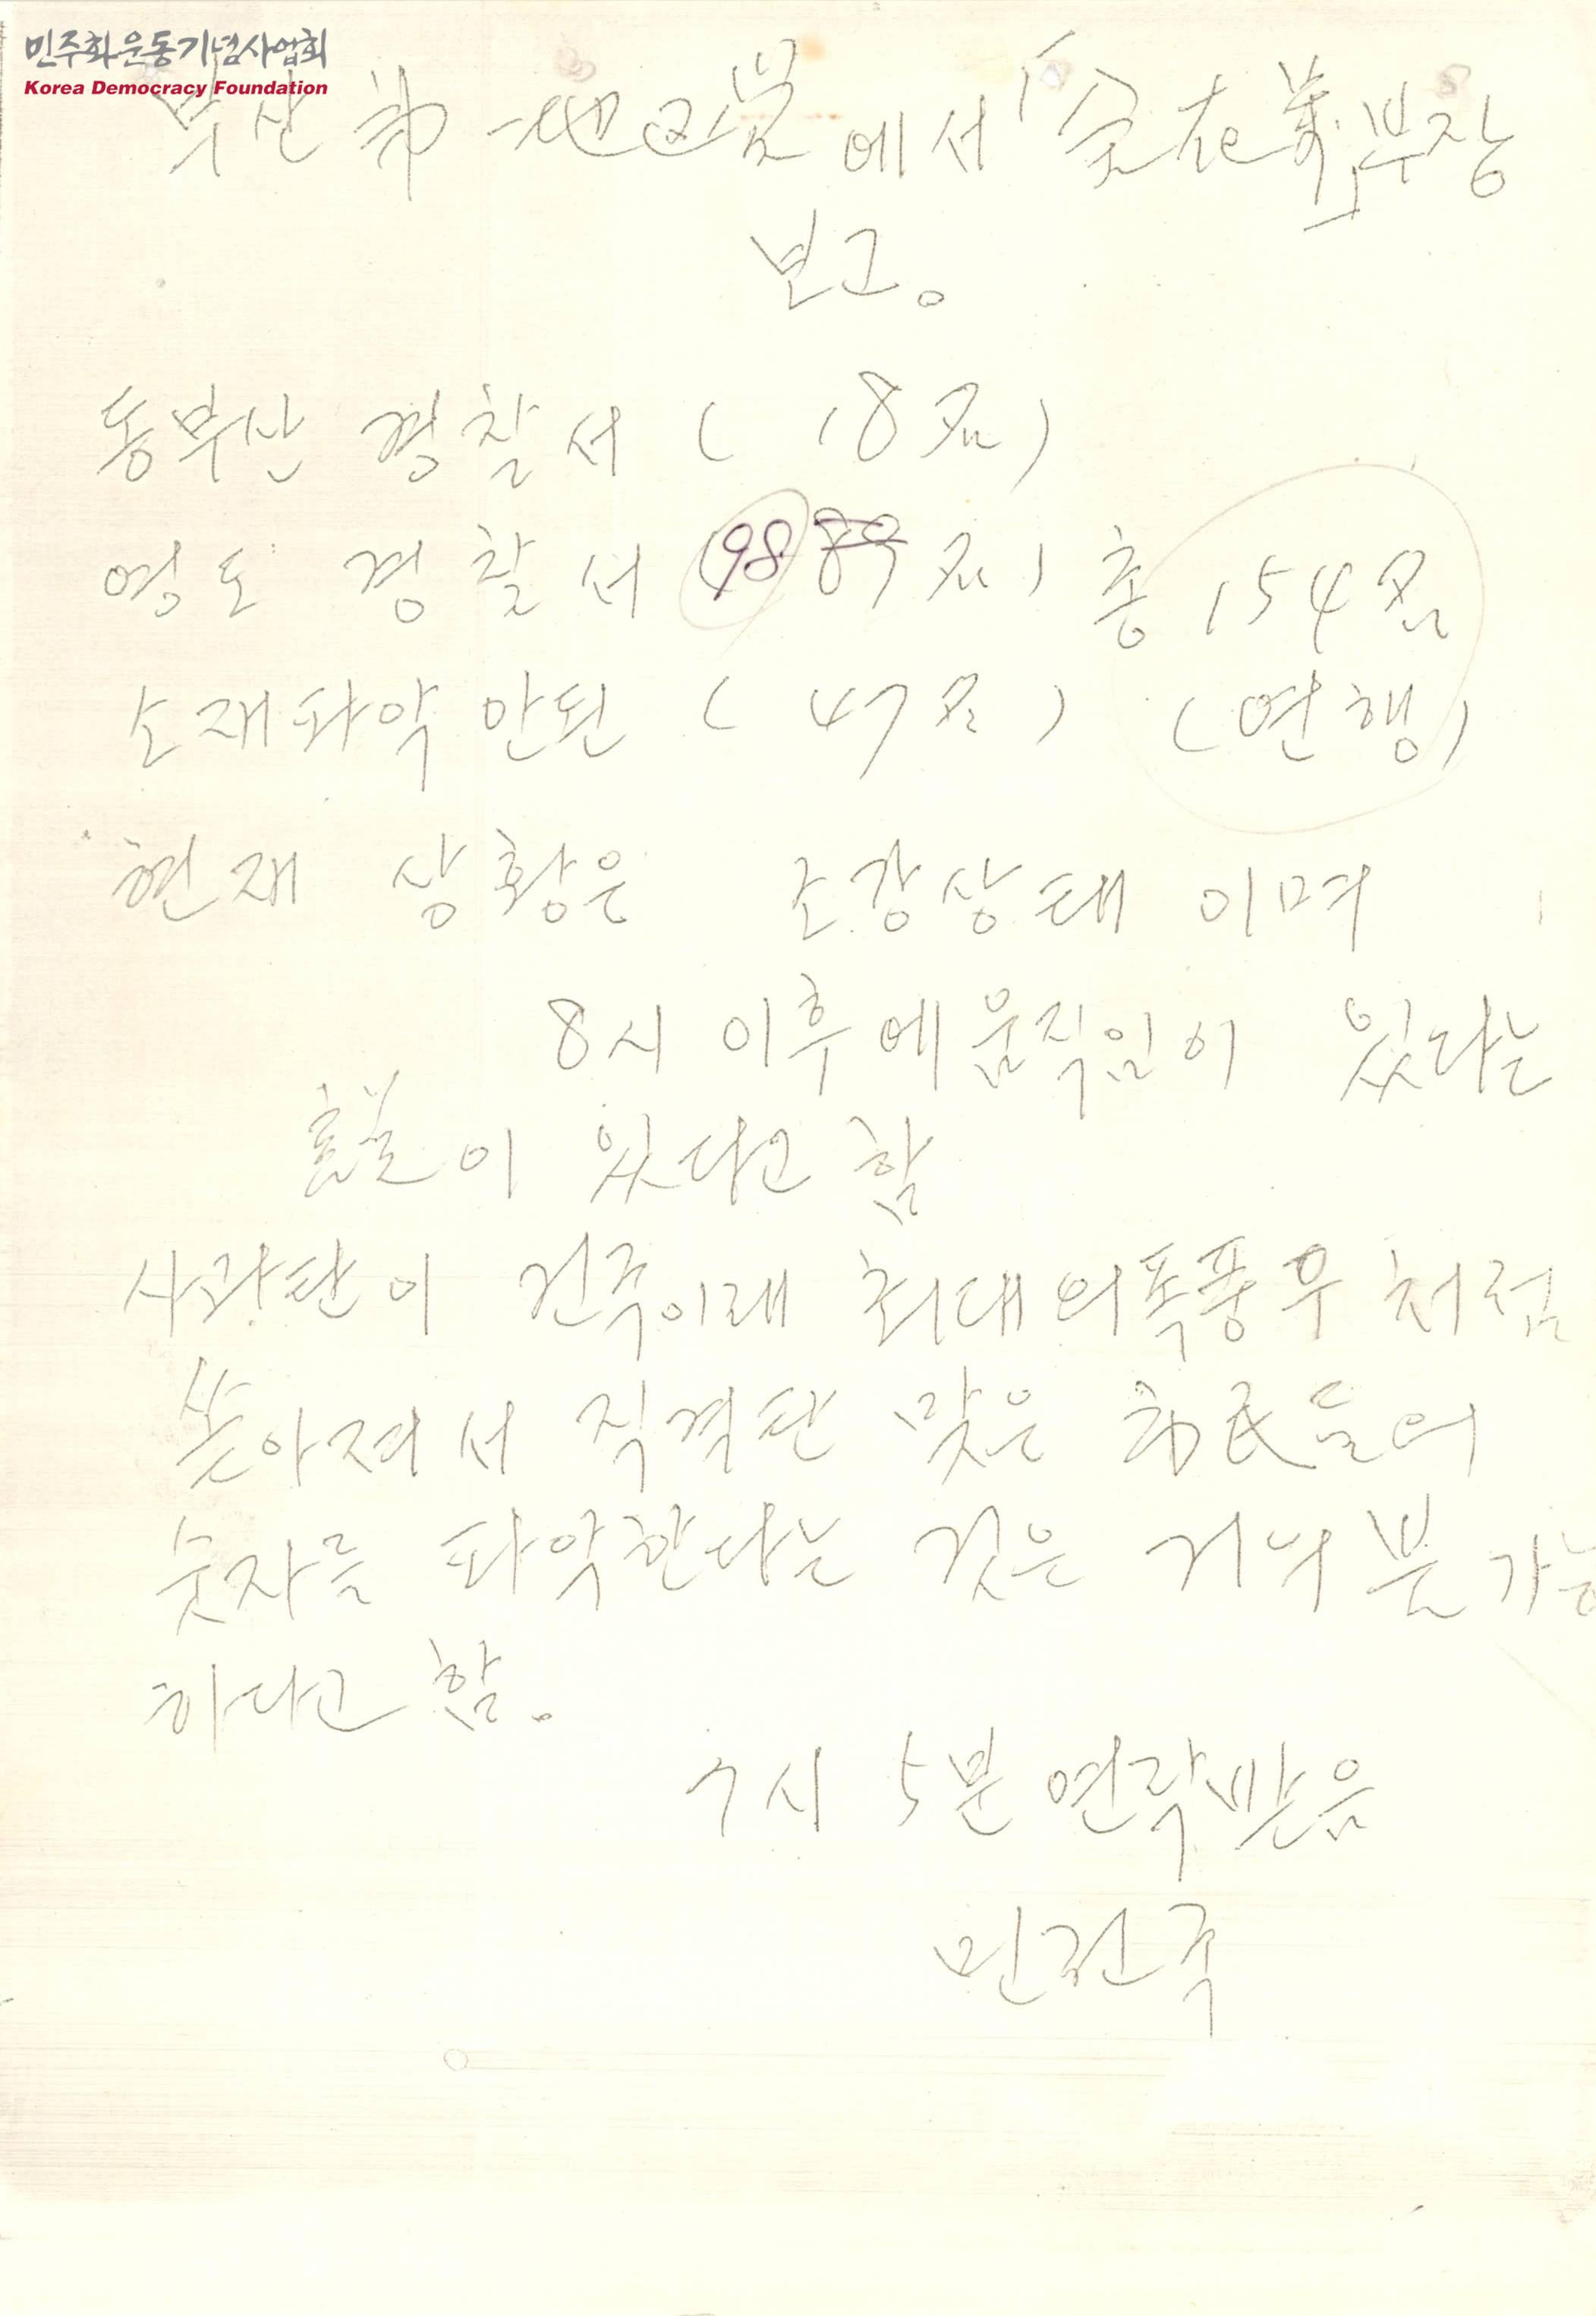 민주화운동기념사업회
Korea Democracy Foundation
부산 市 地区党 에서 「金在 부장
보고。
동부산 경찰서 ( 18名)
영도 경찰서 (98 89名) 총 154名
소재파악 안된 ( 47名 ) (연행)
현재 상황은 소강상태 이며
8시 이후에 움직임이 있다는
說이 있다고 함
사과탄이 건국이래 최대의 폭풍우 처럼
쏟아져서 직격탄 맞은 市民들의
숫자를 파악한다는 것은 거의 불가능
하다고 함.
7시 5분 연락받음
민권국